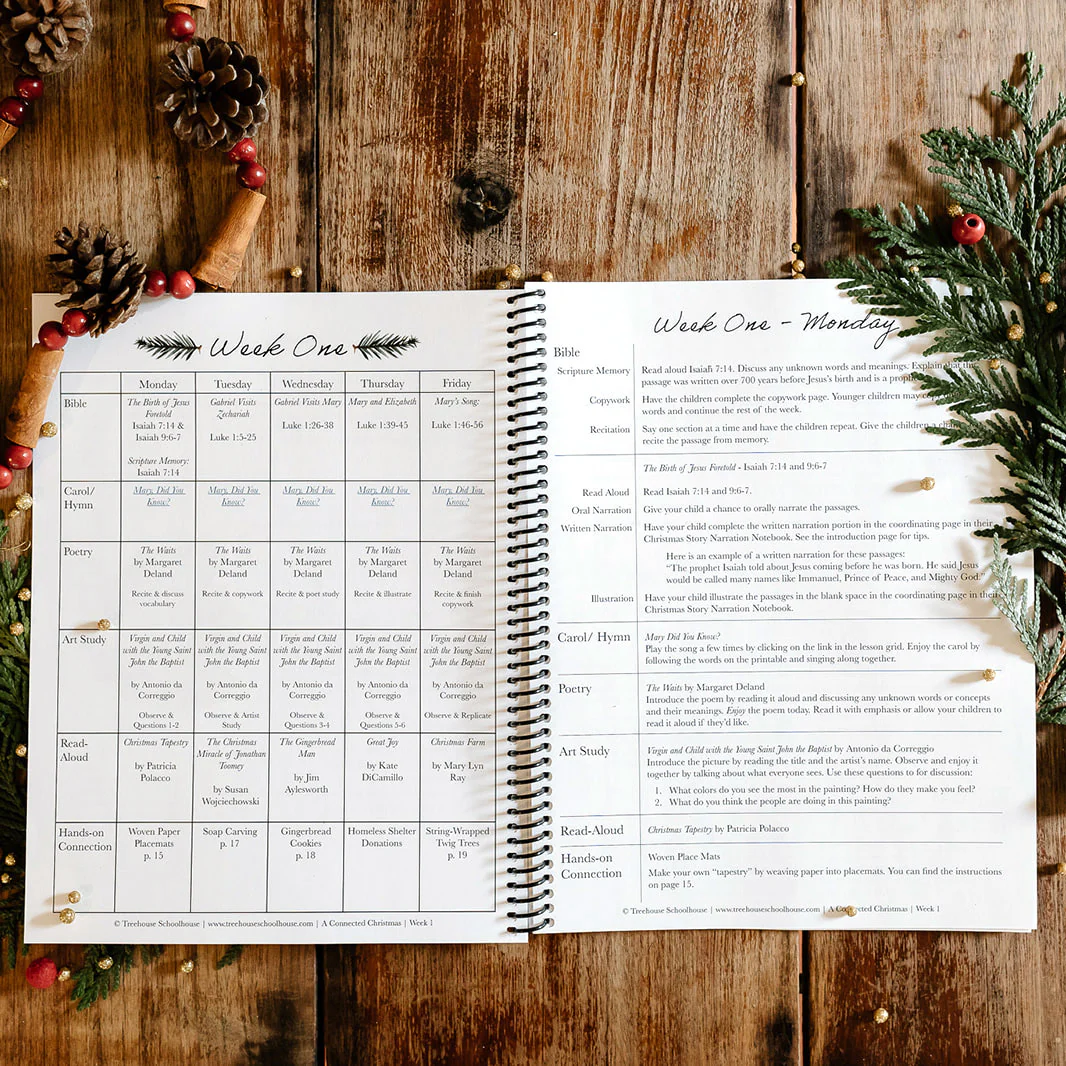 Week One
Monday
Tuesday
Wednesday
Thursday
Friday
Bible
The Birth of Jesus
Foretold
Isaiah 7:14 &
Isaiah 9:6-7
Scripture Memory:
Isaiah 7:14
Gabriel Visits
Zechariah
Luke 1:5-25
Gabriel Visits Mary
Luke 1:26-38
Mary and Elizabeth
Luke 1:39-45
Mary's Song:
Luke 1:46-56
Carol/
Hymn
Mary, Did You
Know?
Mary, Did You
Know?
Mary, Did You
Know?
Mary, Did You
Know?
Mary, Did You
Know?
Poetry
The Waits
by Margaret
Deland
Recite & discuss
vocabulary
The Waits
by Margaret
Deland
Recite & copywork
The Waits
by Margaret
Deland
Recite & poet study
The Waits
by Margaret
Deland
Recite & illustrate
The Waits
by Margaret
Deland
Recite & finish
copywork
Art Study
Virgin and Child
with the Young Saint
John the Baptist
by Antonio da
Correggio
Observe &
Questions 1-2
Virgin and Child
with the Young Saint
John the Baptist
by Antonio da
Correggio
Observe & Artist
Study
Virgin and Child
with the Young Saint
John the Baptist
by Antonio da
Correggio
Observe &
Questions 3-4
Virgin and Child
with the Young Saint
John the Baptist
by Antonio da
Correggio
Observe &
Questions 5-6
Virgin and Child
with the Young Saint
John the Baptist
by Antonio da
Correggio
Observe & Replicate
Read-
Aloud
Christmas Tapestry
by Patricia
Polacco
The Christmas
Miracle of Jonathan
Toomey
by Susan
Wojciechowski
The Gingerbread
Man
by Jim
Aylesworth
Great Joy
by Kate
DiCamillo
Christmas Farm
by Mary Lyn
Ray
Hands-on
Connection
Woven Paper
Placemats
p. 15
Soap Carving
p. 17
Gingerbread
Cookies
p. 18
Homeless Shelter
Donations
String-Wrapped
Twig Trees
p. 19
© Treehouse Schoolhouse | www.treehouseschoolhouse.com | A Connected Christmas | Week 1
Week One - Monday
Bible
Scripture Memory
Read aloud Isaiah 7:14. Discuss any unknown words and meanings. Explain that the
passage was written over 700 years before Jesus's birth and is a
Copywork
Have the children complete the copywork page. Younger children may
words and continue the rest of the week.
Recitation
Say one section at a time and have the children repeat. Give the children a
recite the passage from memory.
The Birth of Jesus Foretold - Isaiah 7:14 and 9:6-7
Read Aloud
Read Isaiah 7:14 and 9:6-7.
Oral Narration
Give your child a chance to orally narrate the passages.
Written Narration
Have your child complete the written narration portion in the coordinating page in their
Christmas Story Narration Notebook. See the introduction page for tips.
Here is an example of a written narration for these passages:
"The prophet Isaiah told about Jesus coming before he was born. He said Jesus
would be called many names like Immanuel, Prince of Peace, and Mighty God."
Illustration
Have your child illustrate the passages in the blank space in the coordinating page in their
Christmas Story Narration Notebook.
Carol/ Hymn
Mary Did You Know?
Play the song a few times by clicking on the link in the lesson grid. Enjoy the carol by
following the words on the printable and singing along together.
Poetry
The Waits by Margaret Deland
Introduce the poem by reading it aloud and discussing any unknown words or concepts
and their meanings. Enjoy the poem today. Read it with emphasis or allow your children to
read it aloud if they'd like.
Art Study
Virgin and Child with the Young Saint John the Baptist by Antonio da Correggio
Introduce the picture by reading the title and the artist's name. Observe and enjoy it
together by talking about what everyone sees. Use these questions to for discussion:
1. What colors do you see the most in the painting? How do they make you feel?
2. What do you think the people are doing in this painting?
Read-Aloud
Christmas Tapestry by Patricia Polacco
Hands-on
Connection
Woven Place Mats
Make your own "tapestry" by weaving paper into placemats. You can find the instructions
on page 15.
© Treehouse Schoolhouse | www.treehouseschoolhouse.com | A Connected Christmas | Week 1